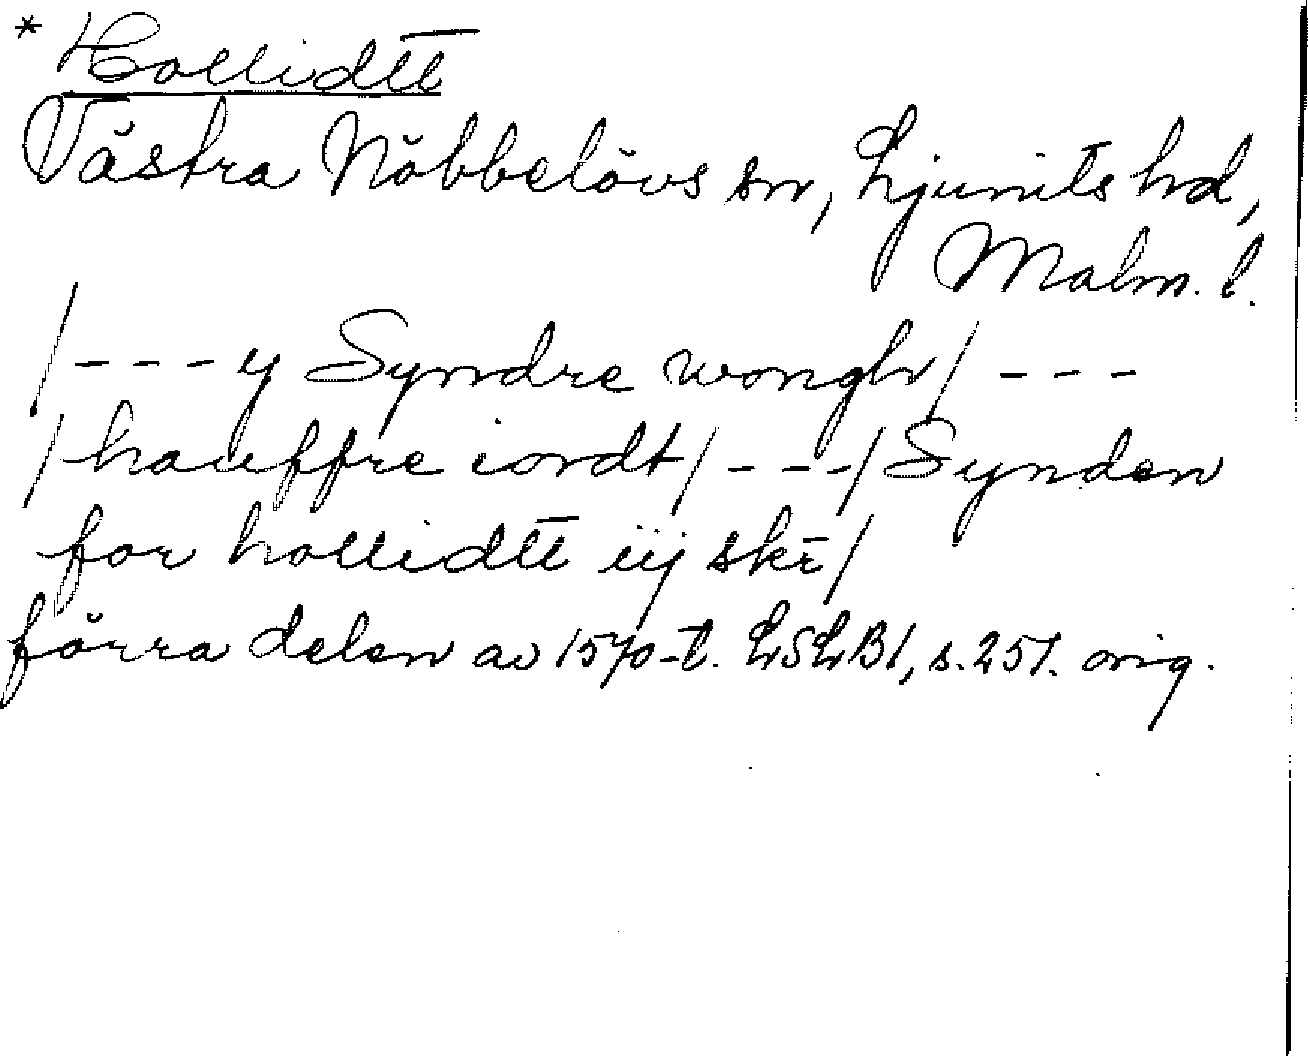 * Hollidtt
Västra Nöbbelövs sn, Ljunits hd,
Malm. l.
/---y Syndre wongh/ ---
/hauffre iordt/---/Synden
for hollidtt iij skr̄/
förra delen av 1570-t. LSLB1, s.251. orig.